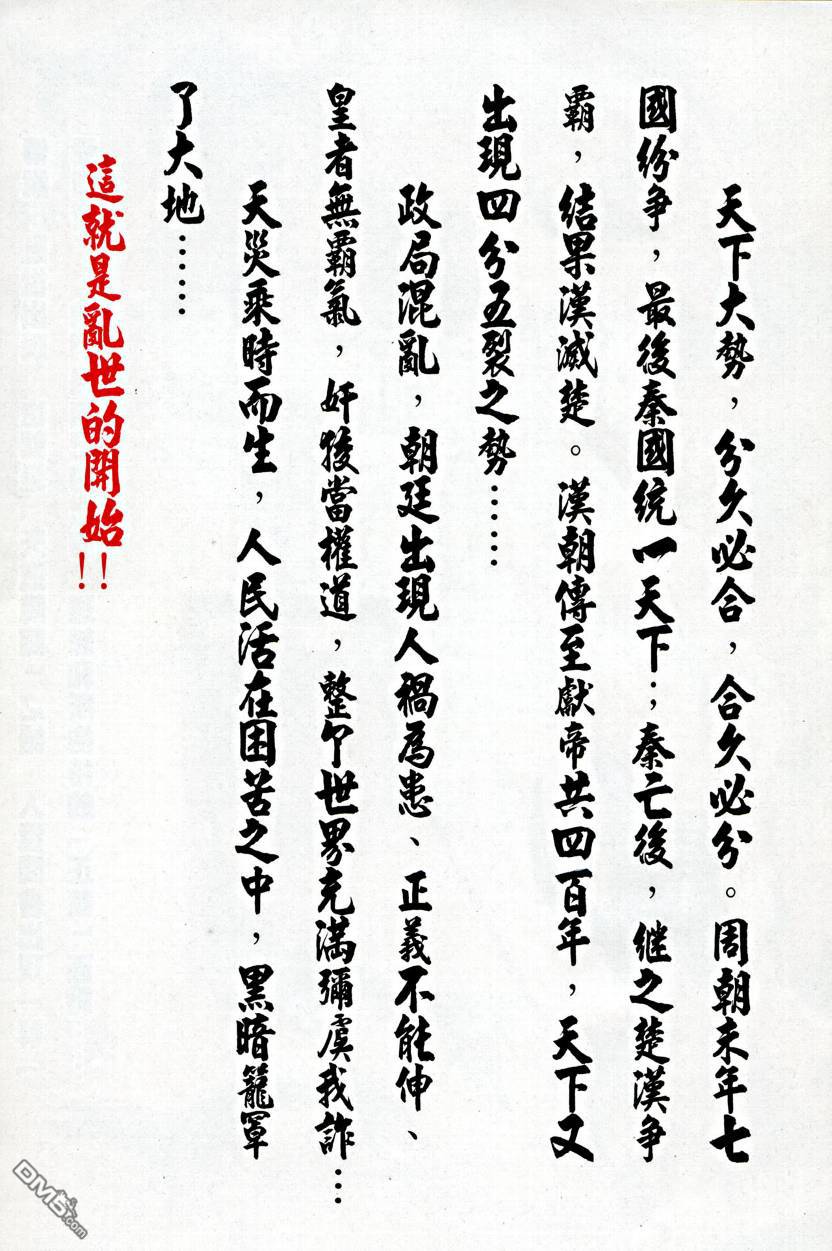 天下大勢，分久必合，合久必分。周朝末年七
國紛爭，最後秦國統一天下；秦亡後，繼之楚漢爭
霸，結果漢滅楚。漢朝傳至獻帝共四百年，天下又
出現四分五裂之勢……
政局混亂，朝廷出現人禍為患、正義不能伸、
皇者無霸氣，奸狡當權道，整个世界充滿彌虞我詐…
天災乘時而生，人民活在困苦之中，黑暗籠罩
了大地……
這就是亂世的開始!!
DM5.com